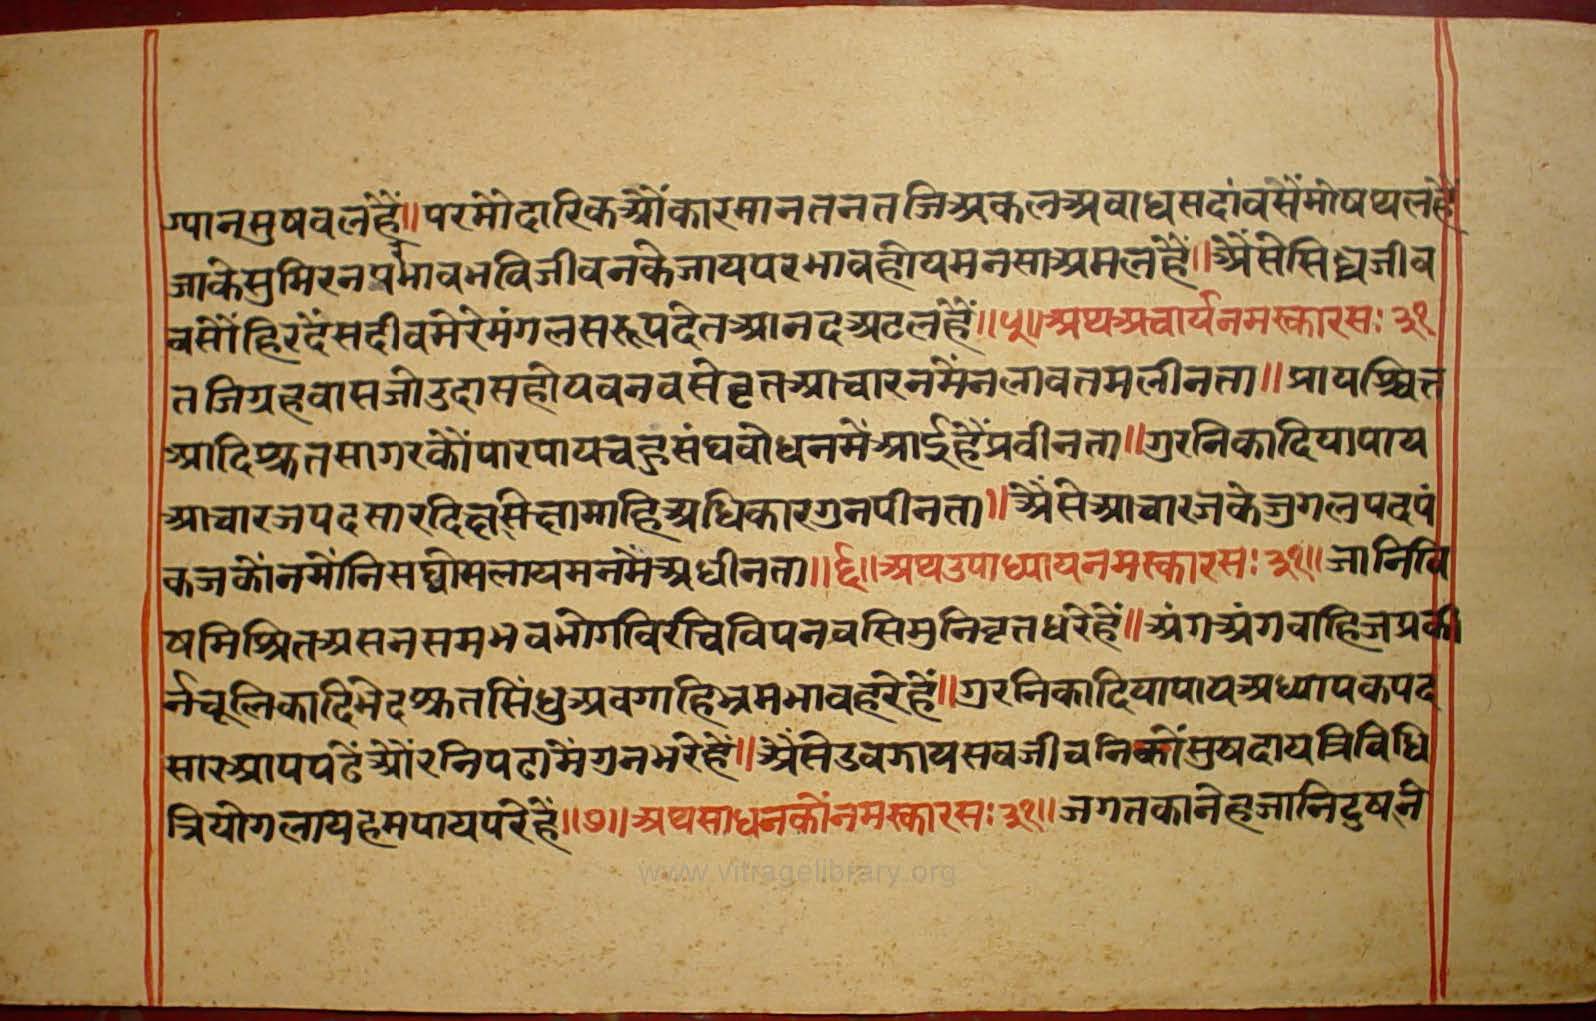 ग्पानसुषवलहैं॥परमौदारिकऔंकारमानतनतजिअकलअवाधसदांवसैंमोषथलहैं
जाकेसुमिरनप्रभावभविजीवनकेजायपरभावहोयमनसाअमलहैं॥अैंसेसिध्रजीव
वसौंहिरदैंसदीवमेरेमंगलसरूपदेतआनदअटलहैं॥५॥अथअचार्यनमस्कारसः३१
तजिग्रहवासजोउदासहोयवनवसेवृतआचारनमैंनलावतमलीनता॥प्रायश्चित
आदिश्रुतसागरकौंपारपायचहुसंघवोधनमेंआईहैंप्रवीनता॥गुरनिकादियापाय
आचारजपदसारदिक्षासिक्षामाहिअधिकारगुनपीनता॥अैंसेआचारजकेजुगलपदपं
कजकौंनमौंनिसद्योसलायमनमैंअधीनता॥६॥अथउपाध्यायनमस्कारसः३१॥जानिवि
षमिश्रितअसनसमभवभोगविरचिविपनवसिमुनिवृतधरेहैं॥अंगअंगवाहिजप्रकी
र्नचूलिकादिभेदश्रुतसिंधुअवगाहिभ्रमभावहरेहैं॥गुरनिकादियापायअध्यापकपद
सारआपपढैंऔरनिपढामैंगुनभरेहैं॥अैंसेउवझायसवजीवनिकौंसुषदायत्रिविधि
त्रियोगलायहमपायपरेहैं॥७॥अथसाधनकौंनमस्कारसः३१॥जगतकानेहजानिदुषने
www.vitragelibrary.org